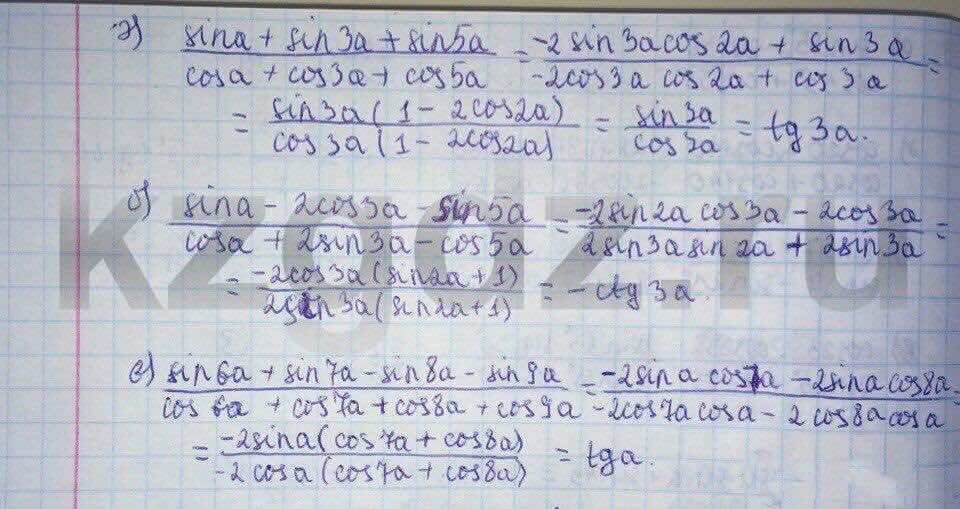 а) (sina + sin3a + sin5a)/(cosa + cos3a + cos5a) = (-2sin3acos2a + sin3a)/(-2cos3a cos2a + cos3a) =
= (sin3a(1 - 2cos2a))/(cos3a(1 - 2cos2a)) = sin3a/cos3a = tg3a.
б) (sina - 2cos3a - sin5a)/(cosa + 2sin3a - cos5a) = (-2sin2a cos3a - 2cos3a)/(2sin3a sin2a + 2sin3a) =
= (-2cos3a(sin2a + 1))/(2sin3a(sin2a + 1)) = -ctg3a.
в) (sin6a + sin7a - sin8a - sin9a)/(cos6a + cos7a + cos8a + cos9a) = (-2sina cos7a - 2sina cos8a)/(-2cos7a cosa - 2cos8a cosa) =
= (-2sina(cos7a + cos8a))/(-2cosa(cos7a + cos8a)) = tga.
kzgdz.ru